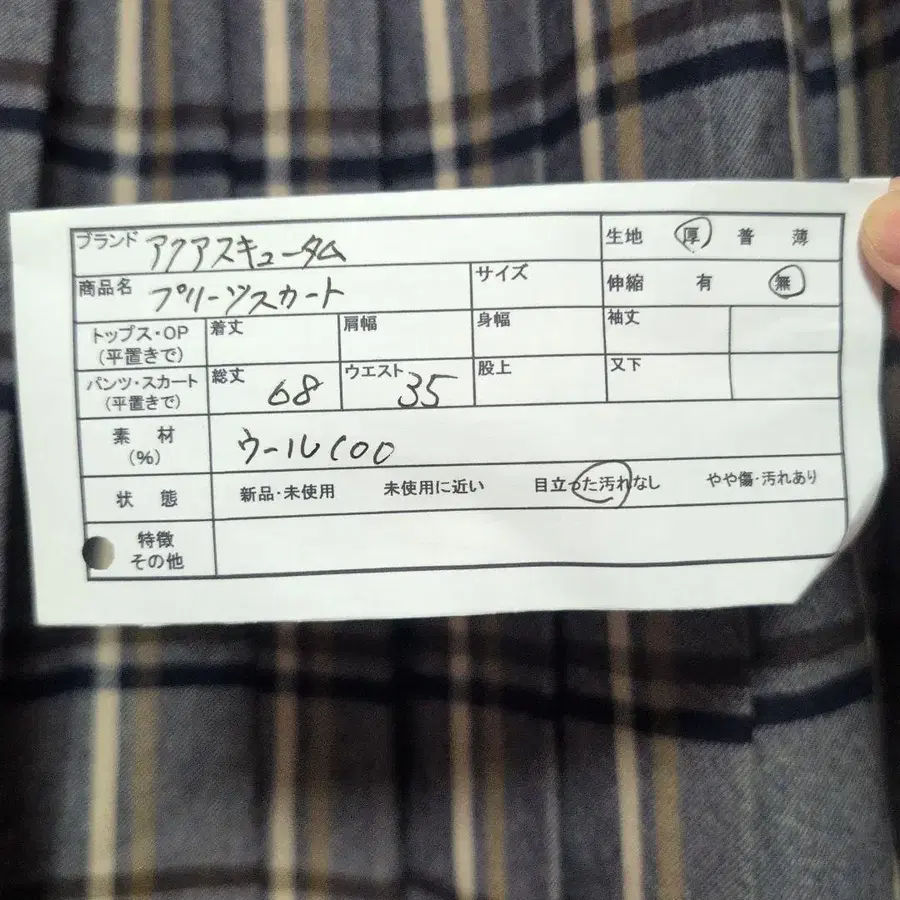 ブランド アクアスキュータム 生地 厚 普 薄
商品名 プリーツスカート サイズ 伸縮 有 無
トップス・OP 着丈 肩幅 身幅 袖丈
(平置きで)
パンツ・スカート 総丈 68 ウエスト 35 股上 又下
(平置きで)
素材 ウール100
(%)
状態 新品・未使用 未使用に近い 目立った汚れなし やや傷・汚れあり
特徴
その他